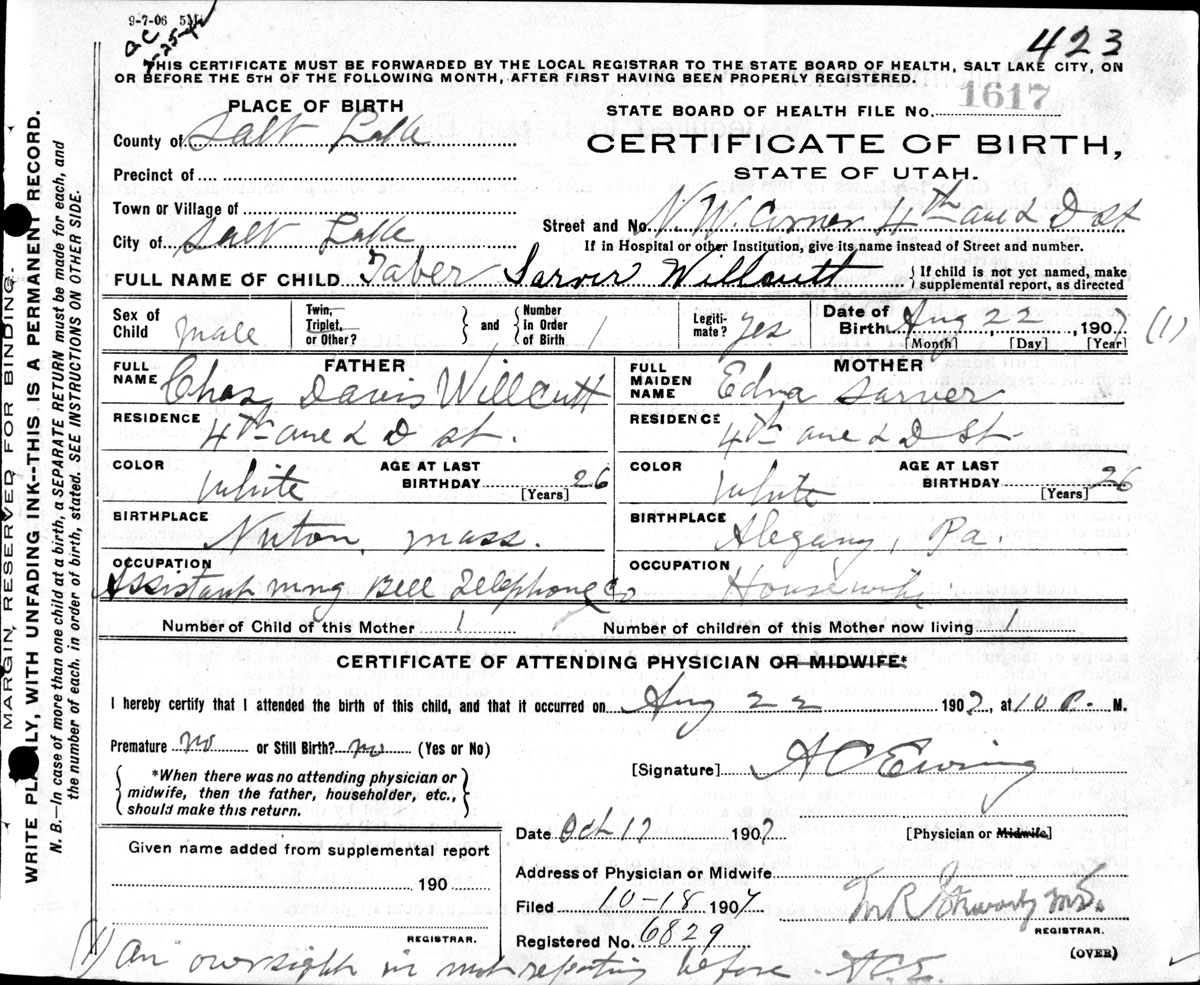 9-7-06 5M
423
THIS CERTIFICATE MUST BE FORWARDED BY THE LOCAL REGISTRAR TO THE STATE BOARD OF HEALTH, SALT LAKE CITY, ON
OR BEFORE THE 5TH OF THE FOLLOWING MONTH, AFTER FIRST HAVING BEEN PROPERLY REGISTERED.
MARGIN RESERVED FOR BINDING.
WRITE PLAINLY, WITH UNFADING INK--THIS IS A PERMANENT RECORD.
N. B.—In case of more than one child at a birth, a SEPARATE RETURN must be made for each, and
the number of each, in order of birth, stated. SEE INSTRUCTIONS ON OTHER SIDE.
PLACE OF BIRTH
County of Salt Lake
Precinct of
Town or Village of
City of Salt Lake
STATE BOARD OF HEALTH FILE No. 1617
CERTIFICATE OF BIRTH,
STATE OF UTAH.
Street and No. N.W. Corner 4th ave & D st
If in Hospital or other Institution, give its name instead of Street and number.
FULL NAME OF CHILD Taber Sarver Willcutt
{If child is not yet named, make
supplemental report, as directed
Sex of Child male
Twin, Triplet, or Other?
and
Number in Order of Birth 1
Legitimate? yes
Date of Birth Aug 22, 1907 (1)
[Month] [Day] [Year]
FATHER
FULL NAME Chas Davis Willcutt
RESIDENCE 4th ave & D st.
COLOR White
AGE AT LAST BIRTHDAY 26 [Years]
BIRTHPLACE Nuton, Mass.
OCCUPATION Assistant mng Bell Telephone Co
MOTHER
FULL MAIDEN NAME Edna Sarver
RESIDENCE 4th ave & D St.
COLOR White
AGE AT LAST BIRTHDAY 26 [Years]
BIRTHPLACE Alegany, Pa.
OCCUPATION Housewife
Number of Child of this Mother 1
Number of children of this Mother now living 1
CERTIFICATE OF ATTENDING PHYSICIAN OR MIDWIFE*
I hereby certify that I attended the birth of this child, and that it occurred on Aug 22 1907, at 10 P. M.
Premature no or Still Birth? no (Yes or No)
{*When there was no attending physician or
midwife, then the father, householder, etc.,
should make this return.}
[Signature] A C Ewing
Date Oct 17 1907
[Physician or Midwife]
Given name added from supplemental report
190
REGISTRAR.
Address of Physician or Midwife
Filed 10-18 1907
Registered No. 6829
REGISTRAR.
(OVER)
(1) An oversight in not reporting before - A.C.E.